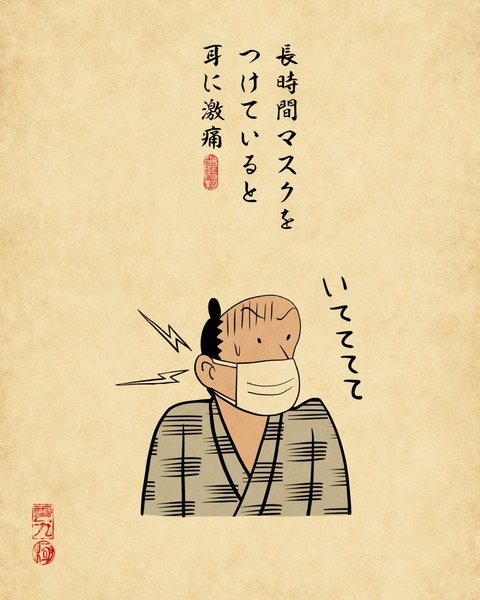 長時間マスクを
つけていると
耳に激痛
いてててて